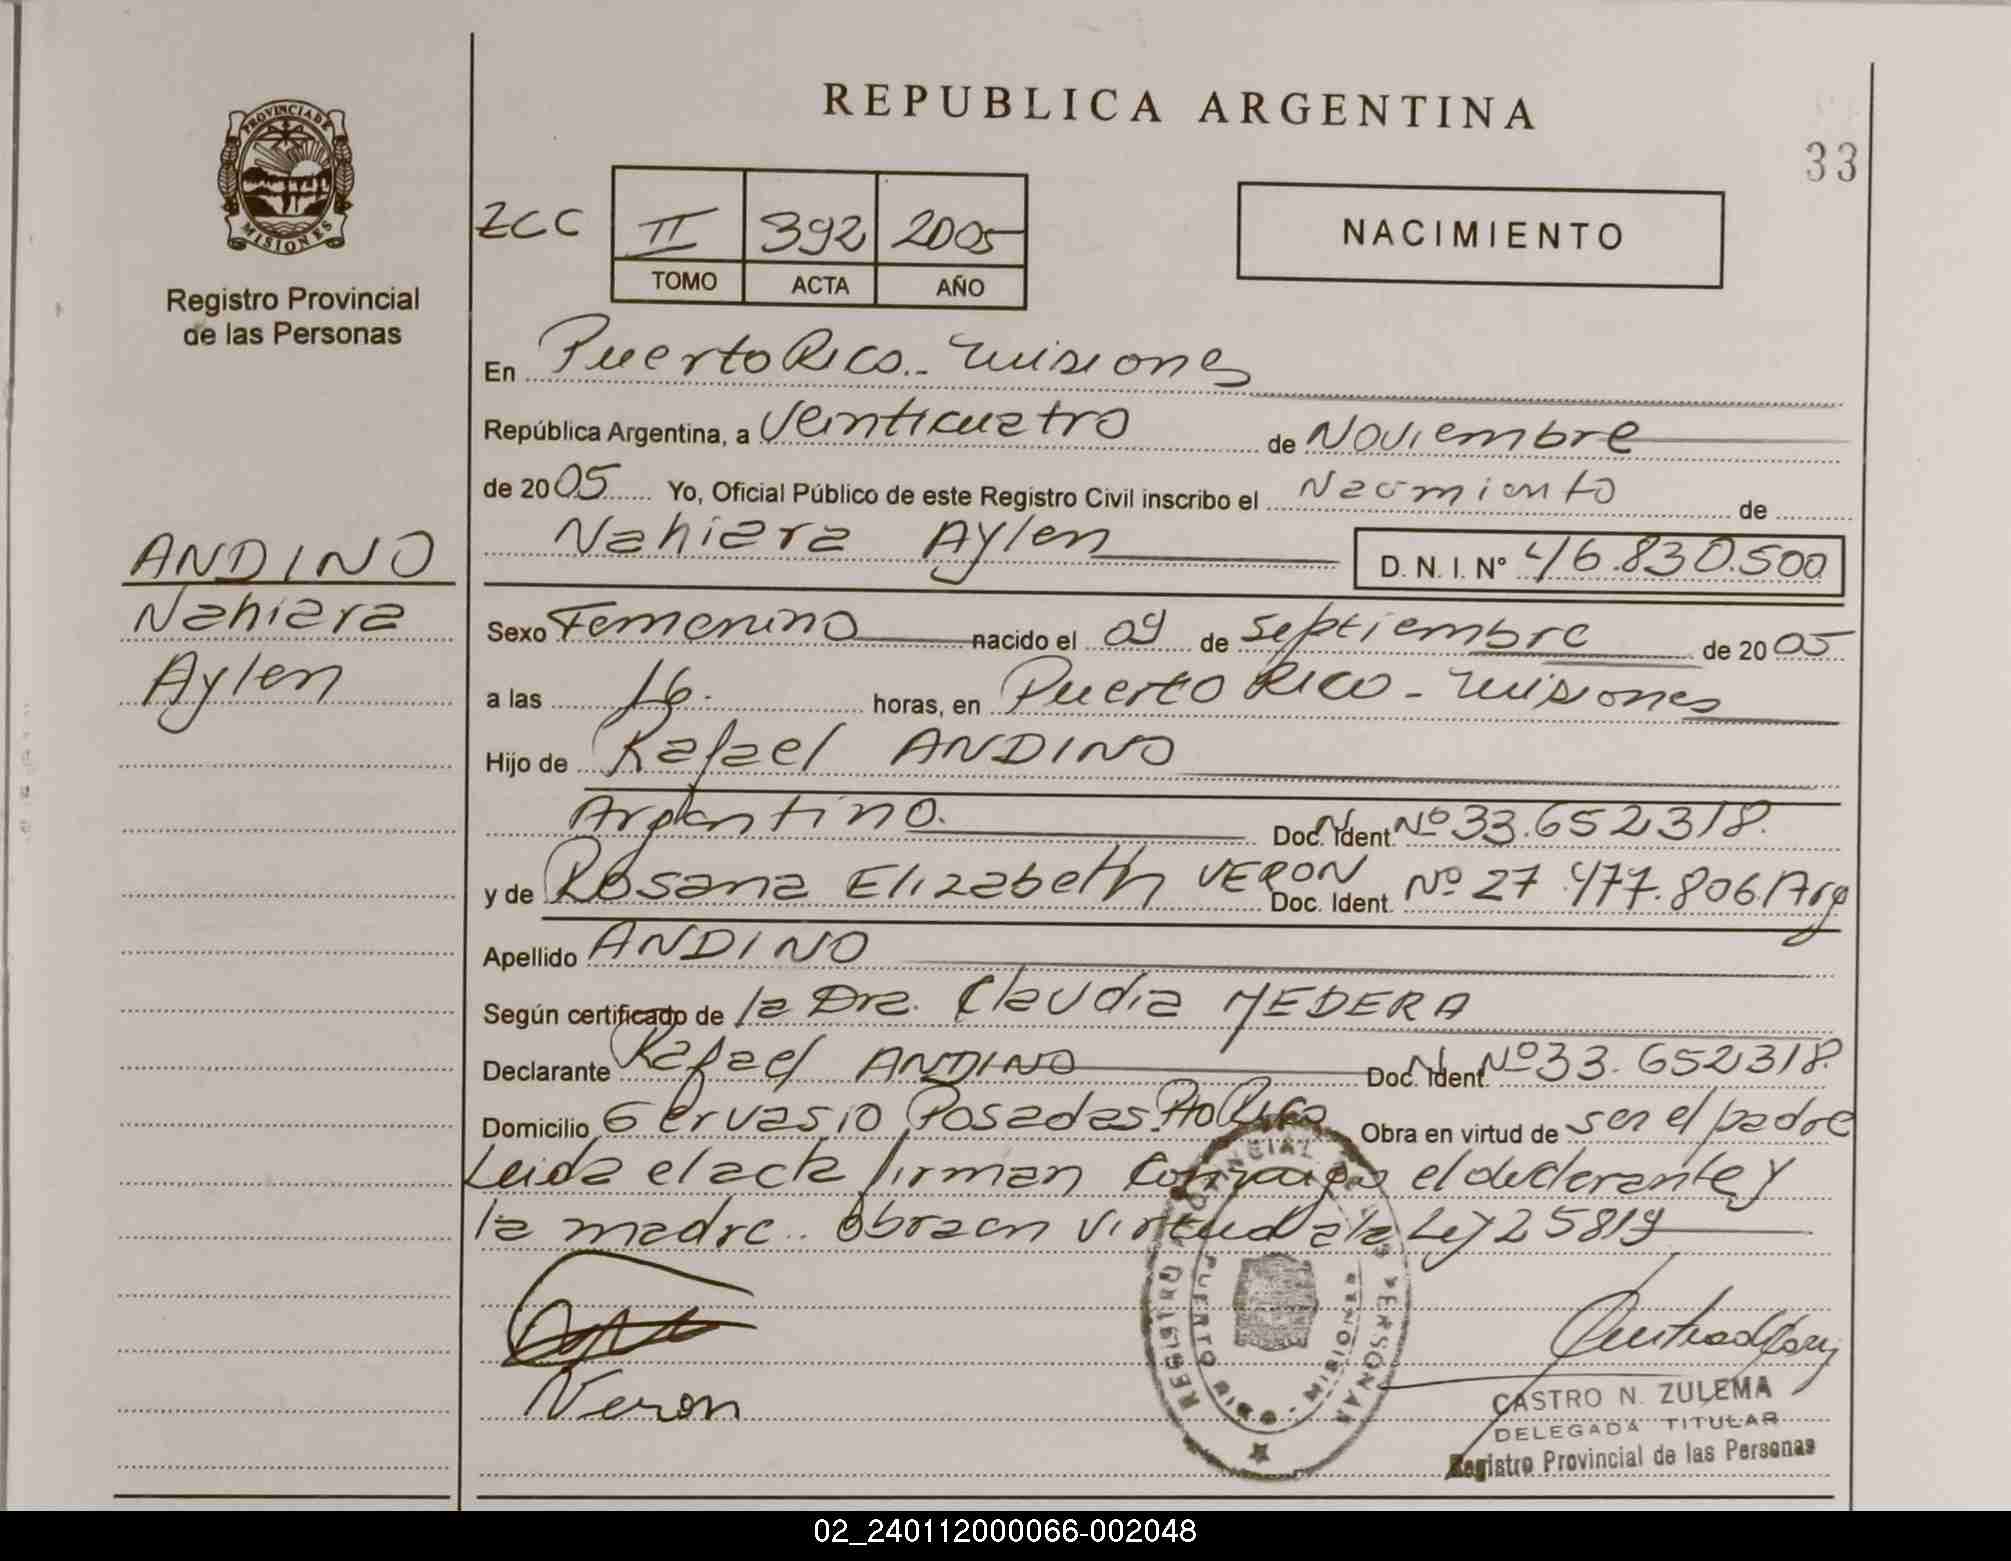 REPUBLICA ARGENTINA
33
PROVINCIA DE
MISIONES
Registro Provincial
de las Personas
ZCC II 392 2005
TOMO ACTA AÑO
NACIMIENTO
En Puerto Rico.. Misiones
República Argentina, a Veinticuatro de Noviembre
de 2005 Yo, Oficial Público de este Registro Civil inscribo el Nacimiento de
Nahiara Aylen D. N. I. N° 46.830.500
ANDINO
Nahiara
Aylen
Sexo Femenino nacido el 09 de Septiembre de 2005
a las 16. horas, en Puerto Rico - Misiones
Hijo de Rafael ANDINO
Argentino. Doc. Ident. Nº 33.652318.
y de Rosana Elizabeth VERON Doc. Ident. Nº 27.477.806 Arg
Apellido ANDINO
Según certificado de la Dra. Claudia MEDERA
Declarante Rafael ANDINO Doc. Ident. Nº 33.652318.
Domicilio Gervasio Posadas Pto Rico Obra en virtud de ser el padre
Leida el acta firman conmigo el declarante y
la madre.. Obra en virtud a la Ley 25819
Veron
REGISTRO PROVINCIAL DE LAS PERSONAS
PUERTO RICO - MISIONES
CASTRO N. ZULEMA
DELEGADA TITULAR
Registro Provincial de las Personas
02_240112000066-002048